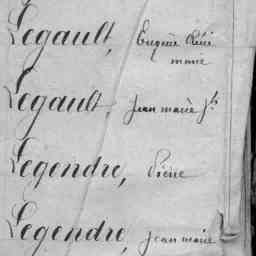 Legault, Eugène René
marie
Legault, Jean marie Jh
Legendre, Pierre
Legendre, Jean marie